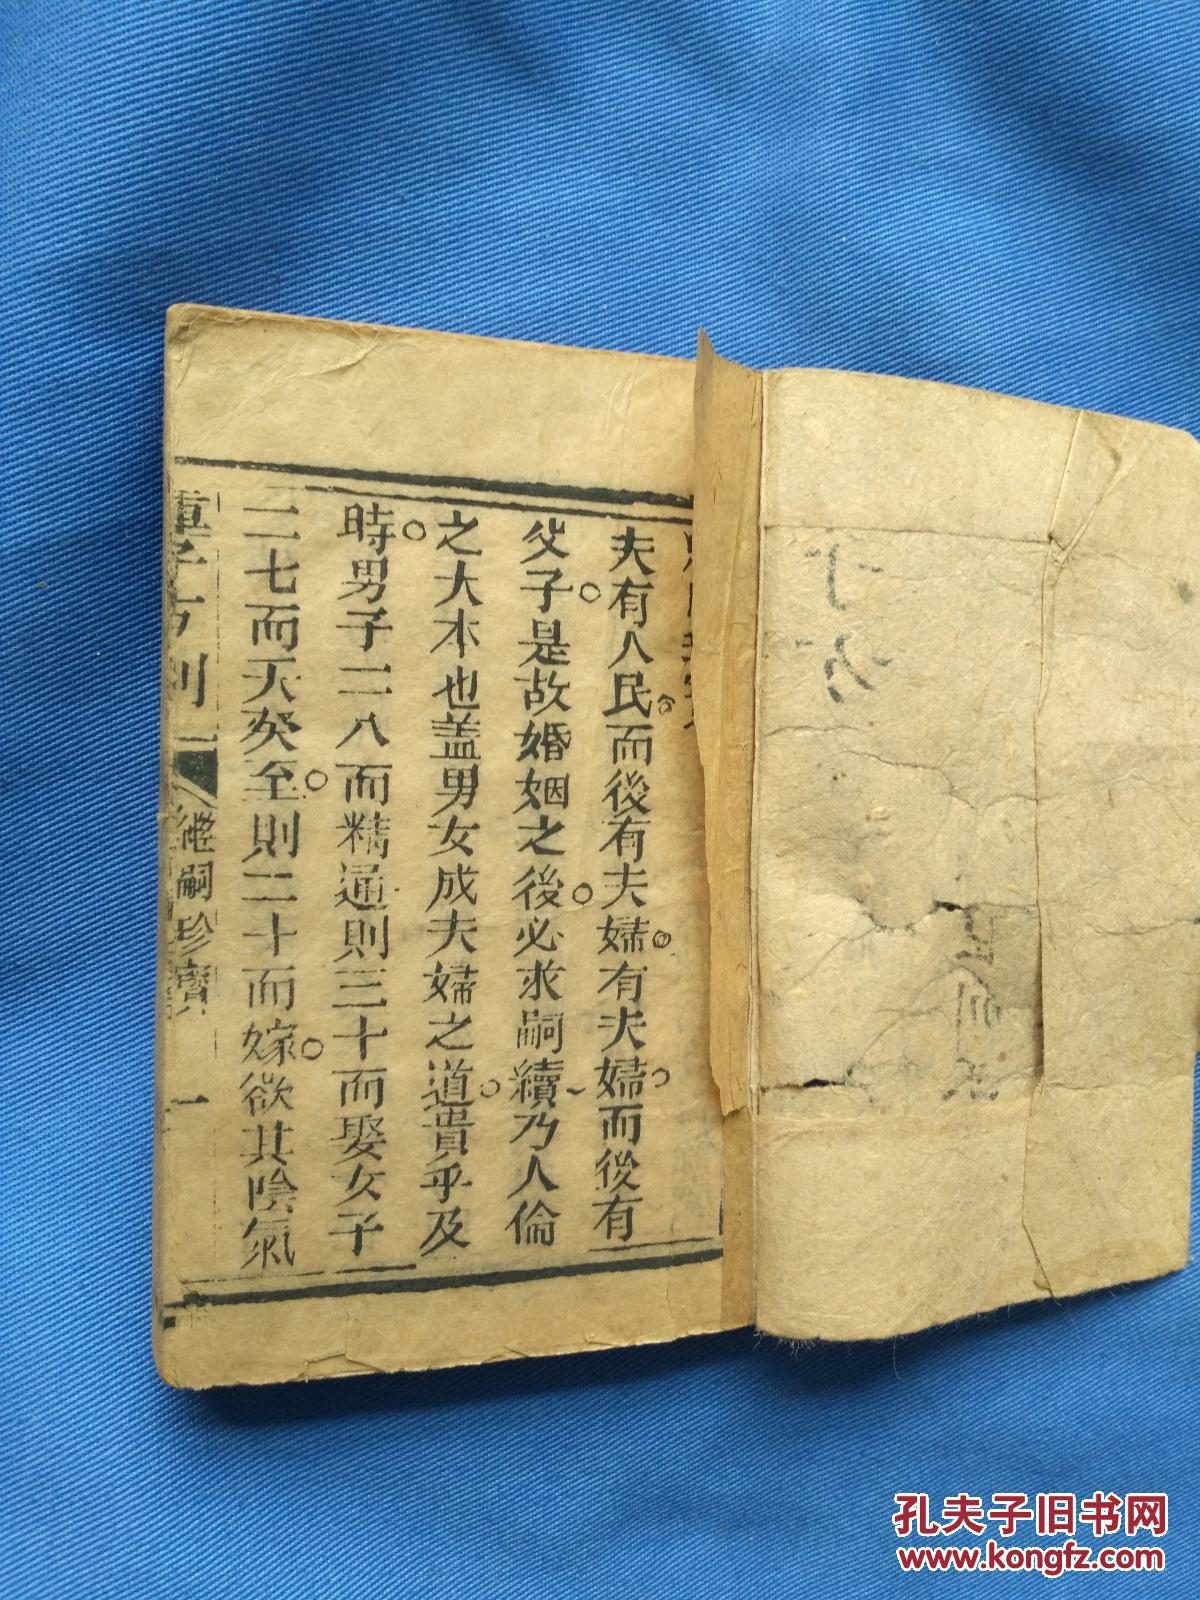 夫有人民而後有夫婦有夫婦而後有
父子是故婚姻之後必求嗣續乃人倫
之大本也蓋男女成夫婦之道貴乎及
時男子二八而精通則三十而娶女子
二七而天癸至則二十而嫁欲其陰氣
繼嗣珍寶 一
孔夫子旧书网
www.kongfz.com